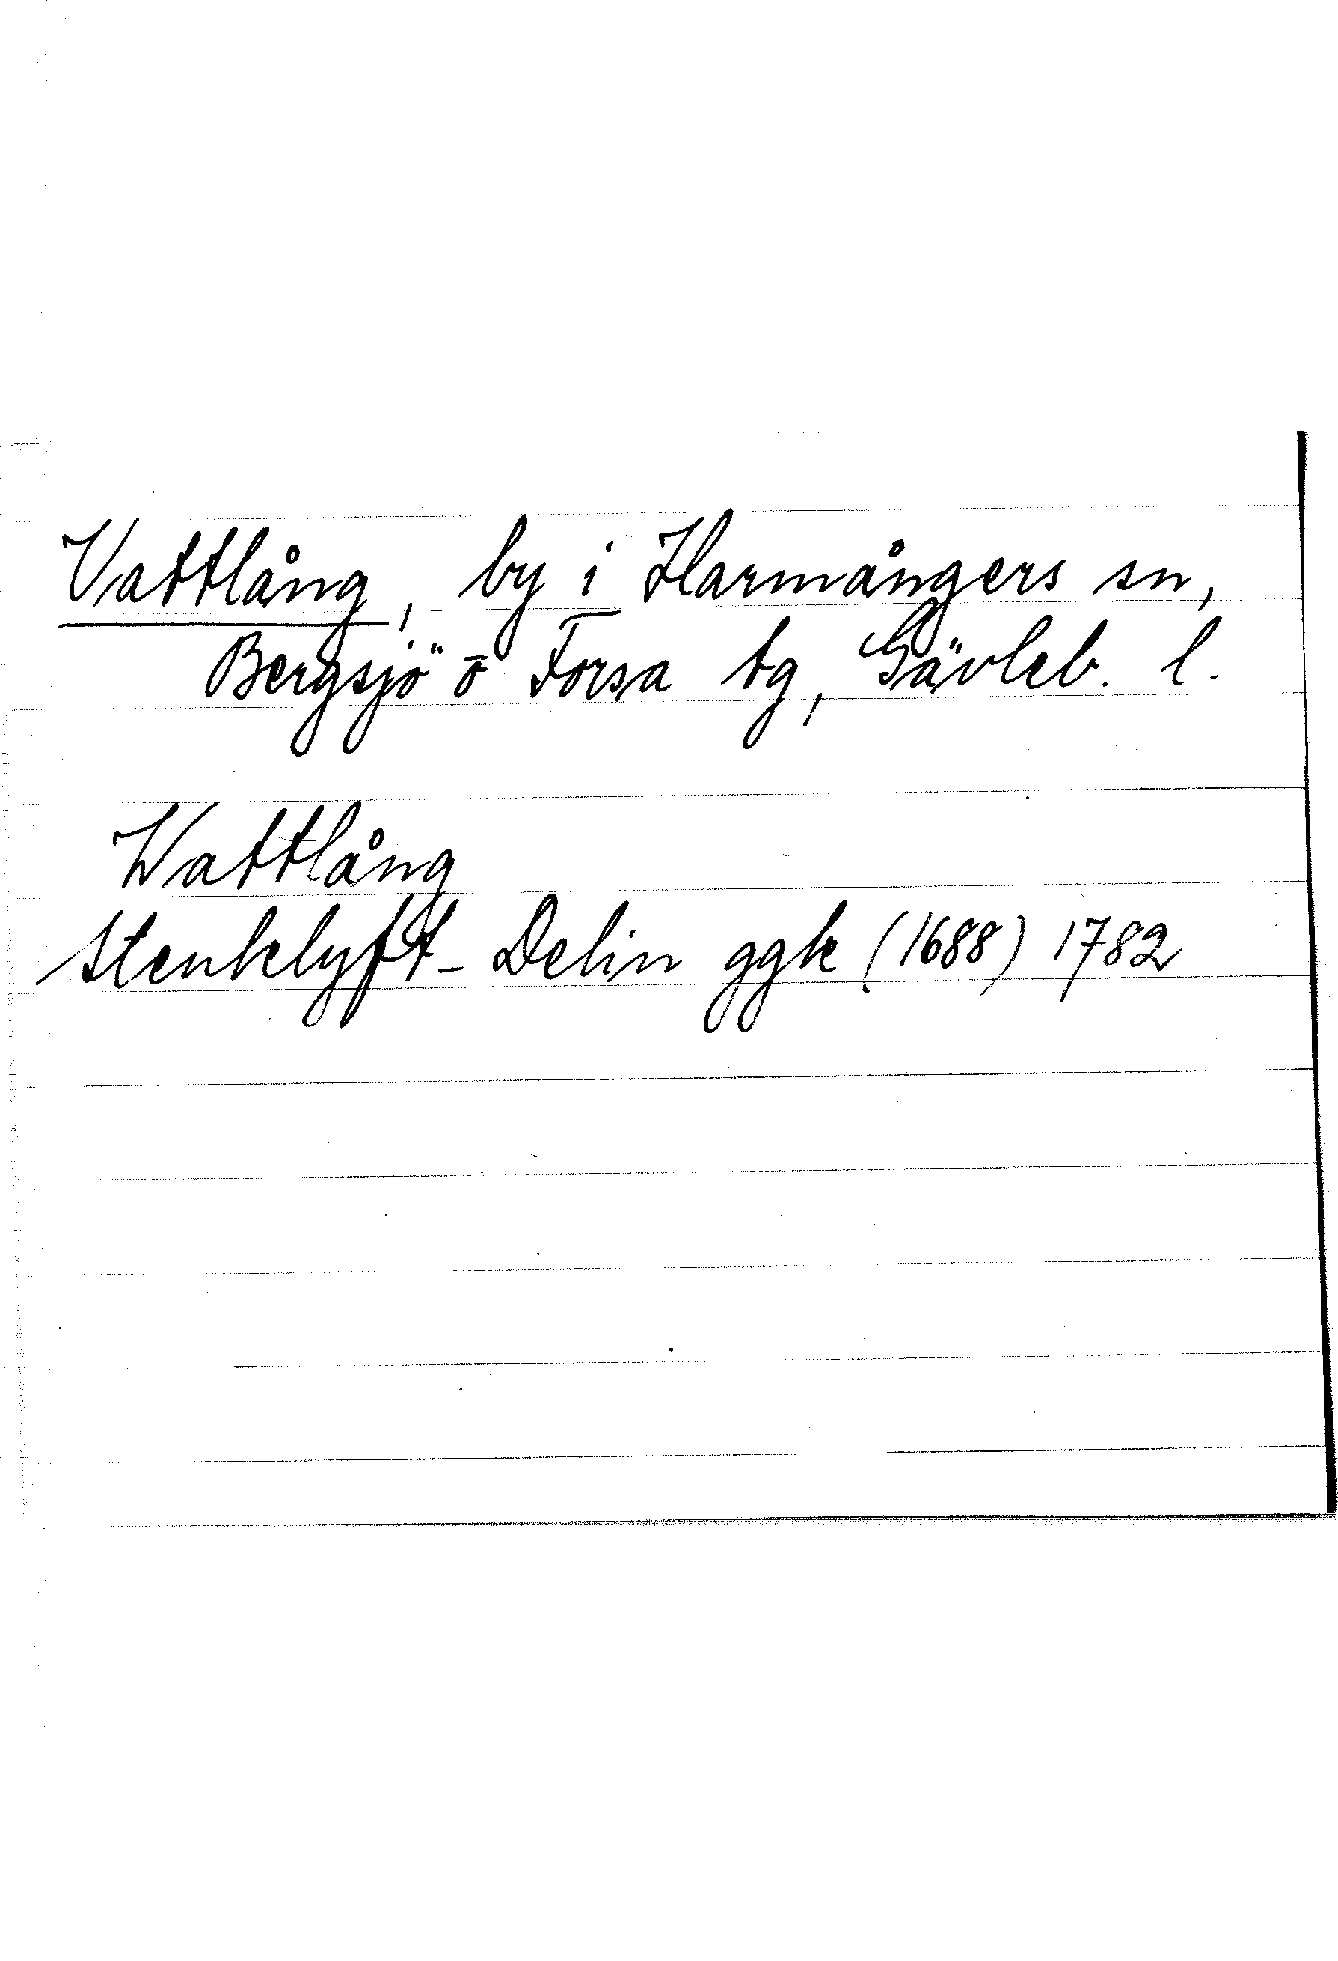 Vattlång, by i Harmångers sn,
Bergsjö o Forsa tg, Gävleb. l.
Wattlång
Stenklyft- Delin ggk (1688) 1782